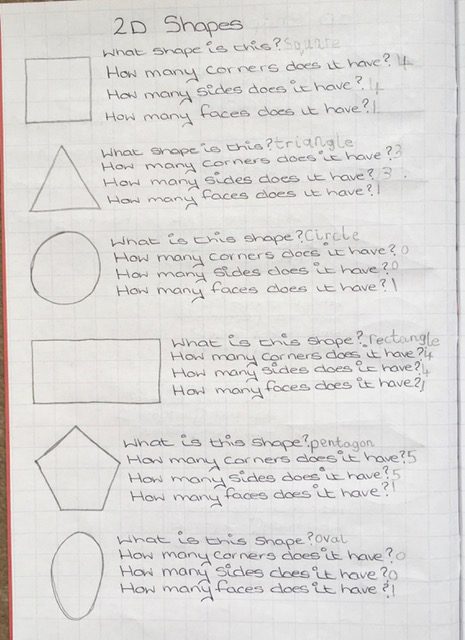 2D Shapes
What shape is this? Square
How many corners does it have? 4
How many sides does it have? 4
How many faces does it have? 1
What shape is this? triangle
How many corners does it have? 3
How many sides does it have? 3
How many faces does it have? 1
What is this shape? Circle
How many corners does it have? 0
How many sides does it have? 0
How many faces does it have? 1
What is this shape? rectangle
How many corners does it have? 4
How many sides does it have? 4
How many faces does it have? 1
What is this shape? pentagon
How many corners does it have? 5
How many sides does it have? 5
How many faces does it have? 1
What is this shape? oval
How many corners does it have? 0
How many sides does it have? 0
How many faces does it have? 1